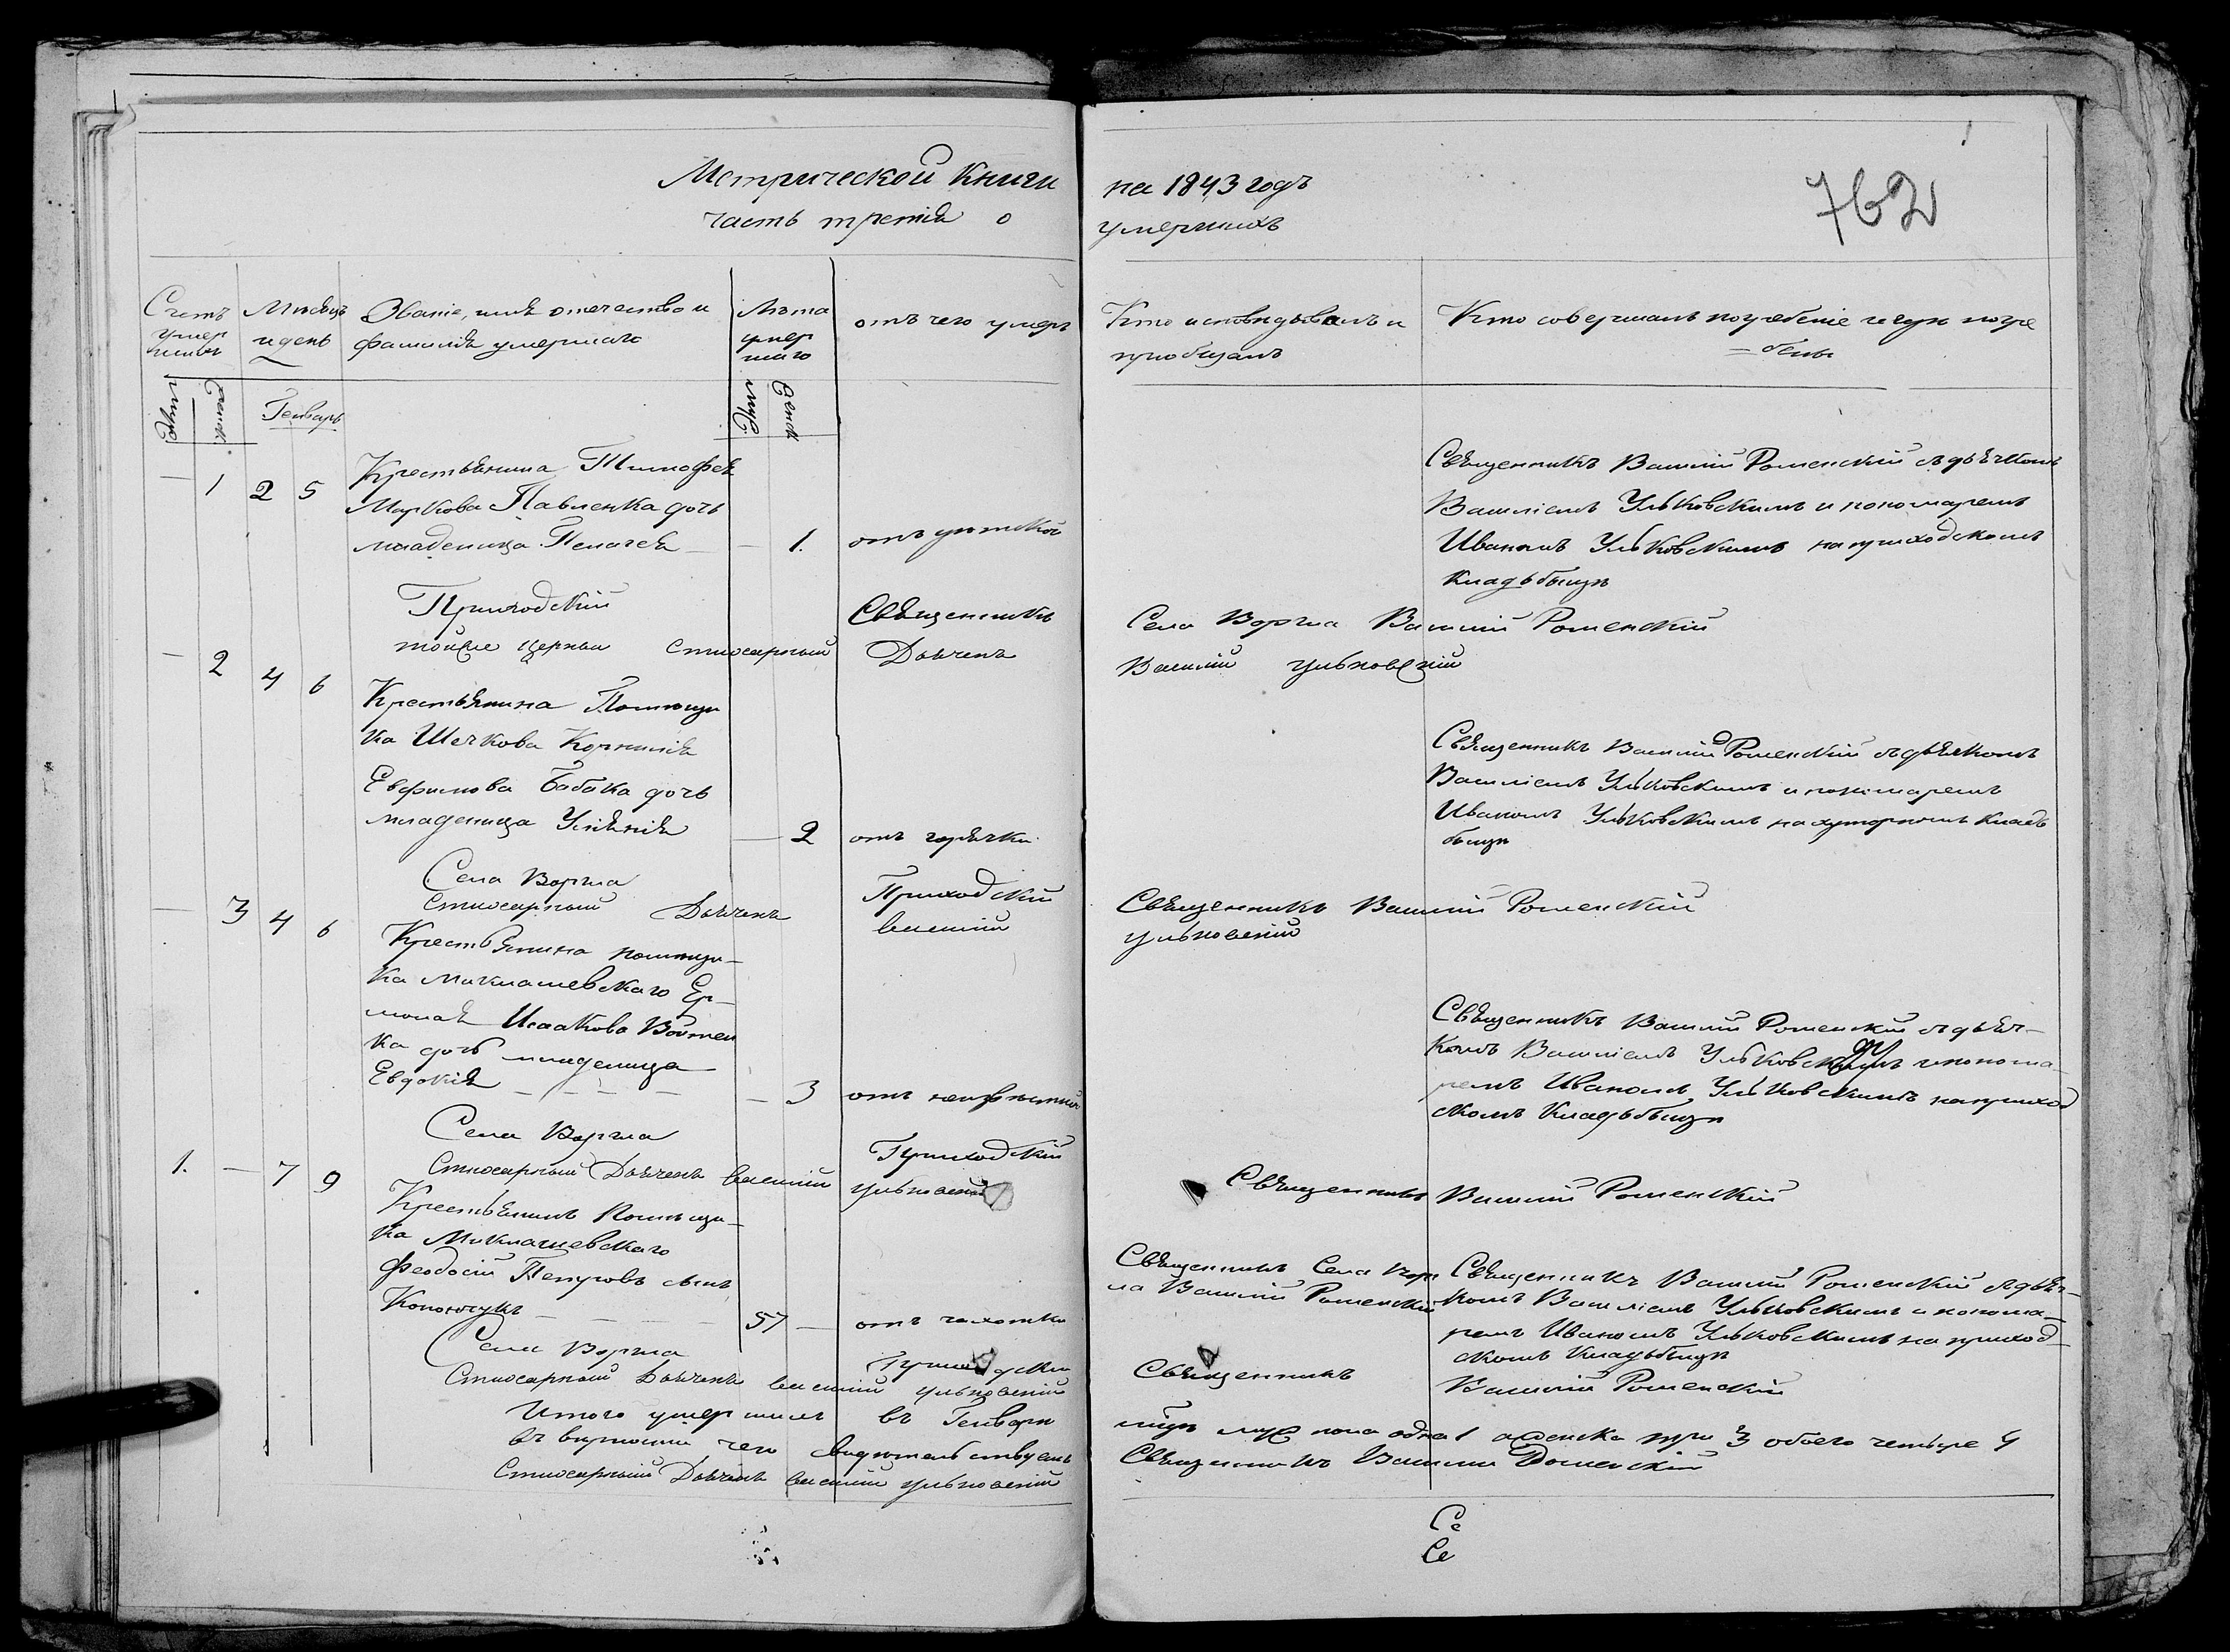 Метрической Книги на 1843 годъ
часть третія о умершихъ
762
Счетъ умершихъ
Мѣсяцъ и день
Званіе, имя отечество и фамилія умершаго
Лѣта умершаго
отъ чего умеръ
Кто исповѣдывалъ и пріобщалъ
Кто совершалъ погребеніе и гдѣ погребены
муж. женск.
Генварь
муж. женск
— 1 2 5
Крестьянина Тимофея
Маркова Павленка дочь
младеница Пелагея — — 1. отъ
Священникъ Василій Роменскій съ дьячкомъ
Василіемъ Ульковскимъ и пономаремъ
Иваномъ Ульковскимъ на приходскомъ
кладьбищѣ
Приходскій Священникъ Села Воргла Василій Роменскій
тойже церкви Стихарный Дьячекъ Василій Ульковскій
— 2 4 6
Крестьянина Помѣщи
ка Шечкова Корнилія
Евфимова Бабака дочь
младеница Уліянія — 2 отъ горячки
Священникъ Василій Роменскій съ дьячкомъ
Василіемъ Ульковскимъ и пономаремъ
Иваномъ Ульковскимъ на хуторномъ кладь
бищѣ
Села Воргла Приходскій Священникъ Василій Роменскій
Стихарный Дьячекъ Василій Ульковскій
— 3 4 6
Крестьянина помѣщи–
ка Миклашевскаго Ер–
молая Исаакова Войтен
ка дочь младеница
Евдокія — — — — — 3 отъ
Священникъ Василій Роменскій съ дьяч–
комъ Василіемъ Ульковскимъ и понома–
ремъ Иваномъ Ульковскимъ на приход
скомъ Кладьбищѣ
Села Воргла Приходскій Священникъ Василій Роменскій
Стихарный Дьячекъ Василій Ульковскій
1. — 7 9
Крестьянинъ Помѣщи–
ка Миклашевскаго
Феодосій Петровъ сынъ
— — — — 57 — отъ чахотки
Священникъ Села Ворг
ла Василій Роменскій
Священникъ Василій Роменскій съ дьяч–
комъ Василіемъ Ульковскимъ и понома–
ремъ Иваномъ Ульковскимъ на приход–
скомъ кладьбищѣ
Села Воргла Приходскій Священникъ Василій Роменскій
Стихарный Дьячекъ Василій Ульковскій
Итого умершихъ въ Генварѣ мѣцѣ муж пола одна 1 а женска три 3 обоего четыре 4
въ вѣрности чего свидѣтельствуемъ Священникъ Василій Роменскій
Стихарный Дьячекъ Василій Ульковскій
Се
Се